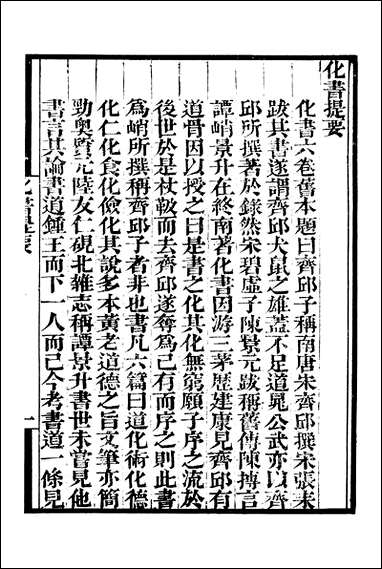 化書提要
化書六卷舊本題曰齊邱子稱南唐宋齊邱撰宋張耒
跋其書遂謂齊邱犬鼠之雄蓋不足道晁公武亦以齊
邱所撰著於錄然宋碧虛子陳景元跋稱舊傳陳摶言
譚峭景升在終南著化書因游三茅歷建康見齊邱有
道骨因以授之曰是書之化其化無窮願子序之流於
後世於是杖靸而去齊邱遂奪爲己有而序之則此書
爲峭所撰稱齊邱子者非也書凡六篇曰道化術化德
化仁化食化儉化其說多本黃老道德之旨文筆亦簡
勁奧質元陸友仁硯北雜志稱譚景升書世未嘗見他
書言其論書道鍾王而下一人而已今考書道一條見